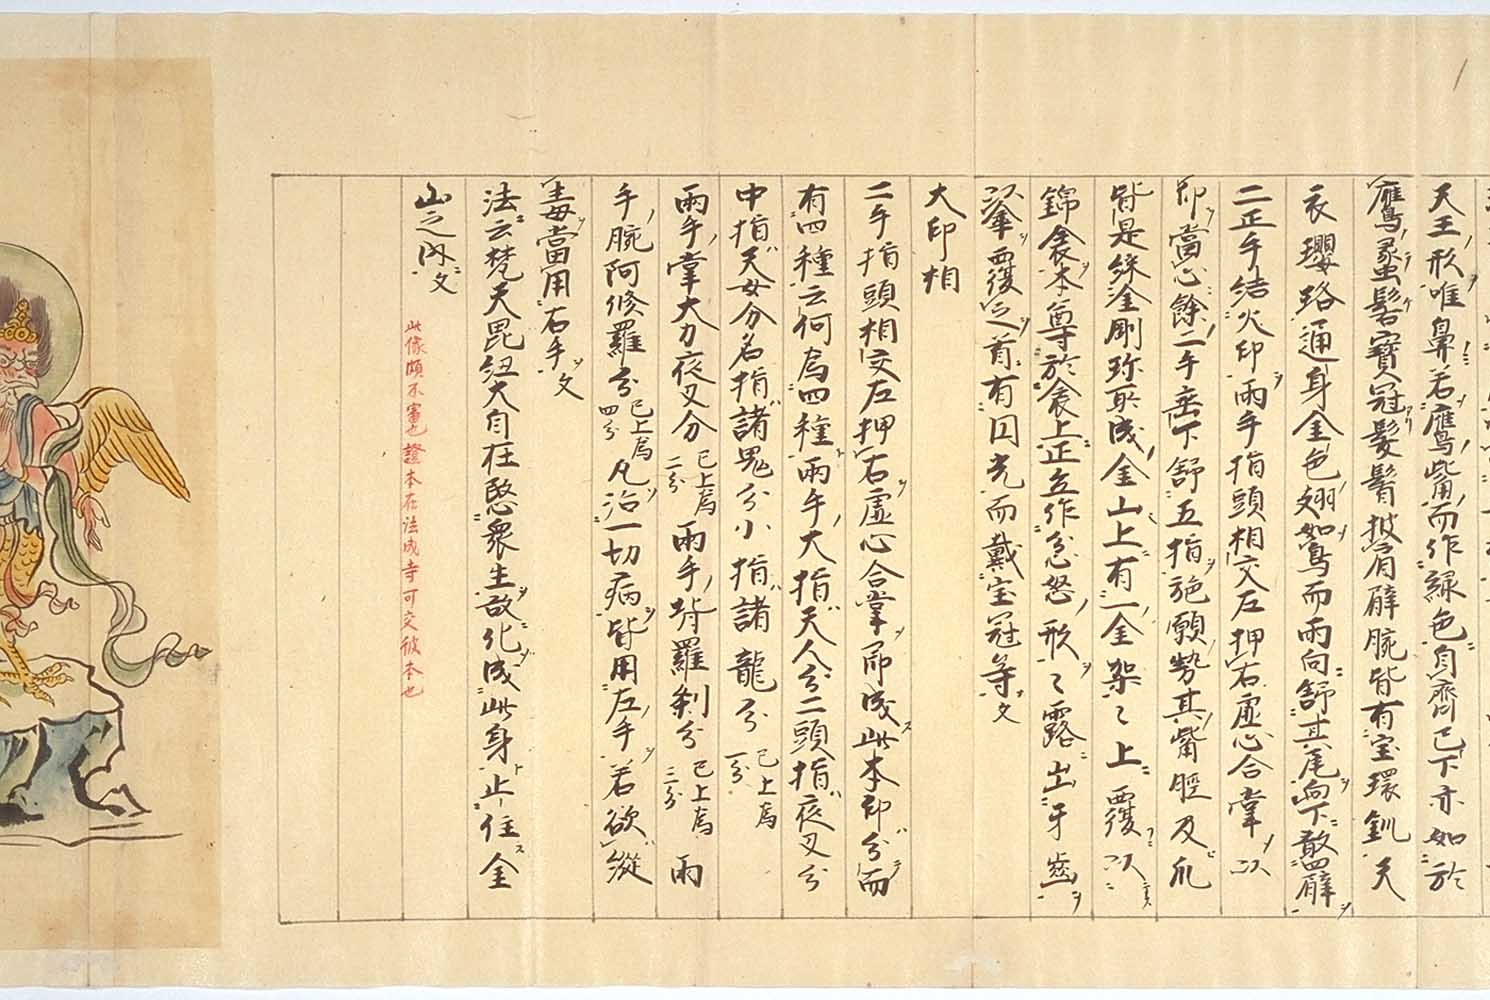 天王形唯鼻若鷹鳥觜而作緑色自齊已下亦如於
鷹𧑓髻寶冠髮髯披肩臂腕皆有宝環釧天
衣瓔珞通身金色翅如鳥而兩向舒其尾向下散四臂
二正手結火印兩手指頭相交左押右虚心合掌以
印當心餘二手垂下舒五指施願勢其觜脛及爪
皆是綵金剛珎所成金山上有一金架〻上覆以
錦衾本尊於衾上正立作忿怒形〻露出牙齒
以覆之首有囙光而戴宝冠等文
大印相
二手指頭相交左押右虚心合掌而成此本印分而
有四種云何爲四種兩手大指天人分二頭指夜叉分
中指天女分名指諸鬼分小指諸龍分已上爲一分
兩手掌大力夜叉分已上爲二分兩手背羅刹分已上爲三分兩
手腕阿修羅分已上爲四分凡治一切病皆用左手若欲縱
毒當用右手文
法云梵天毘紐大自在愍衆生故化成此身止住金
山之内文
此像頗不審也證本在法成寺可交彼本也